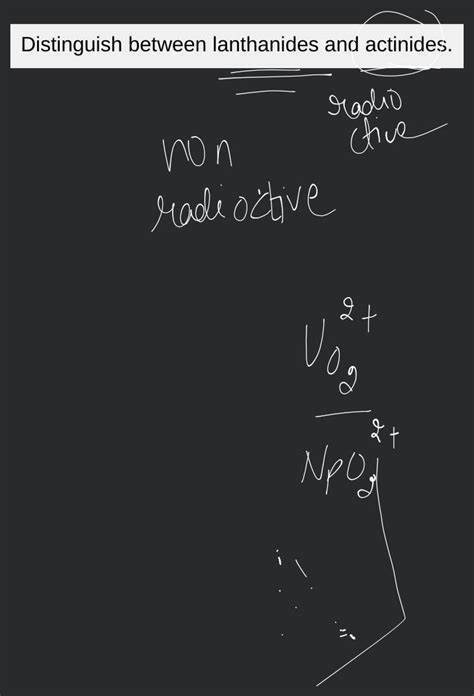 Distinguish between lanthanides and actinides.
radio
ctive
non
radioctive
UO₂²⁺
NpO₂²⁺